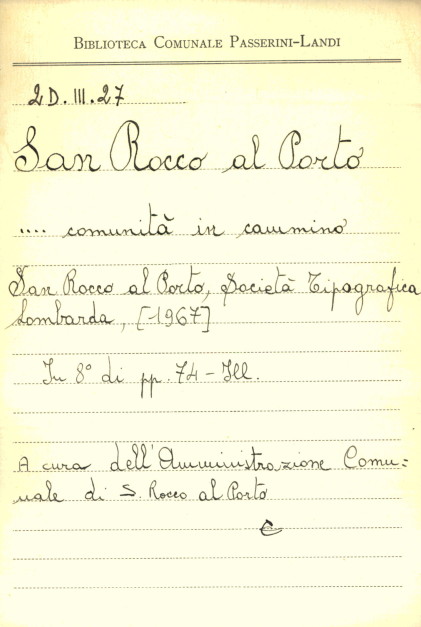 BIBLIOTECA COMUNALE PASSERINI-LANDI
2D.III.27
San Rocco al Porto
.... comunità in cammino
San Rocco al Porto, Società Tipografica
Lombarda, [1967]
In 8° di pp. 74 - Ill.
A cura dell'Amministrazione Comu=
nale di S. Rocco al Porto
C